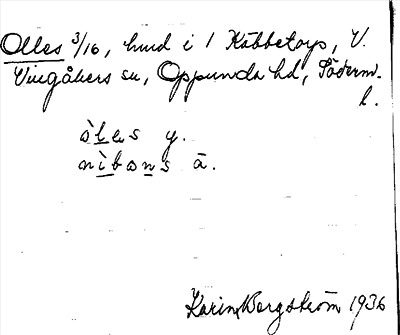 Olles 3/16, hmd i 1 Käbbetorp, V.
Vingåkers sn, Oppunda hd, Söderm.
l.
òles y.
nìbons ā.
Karin Bergström 1936